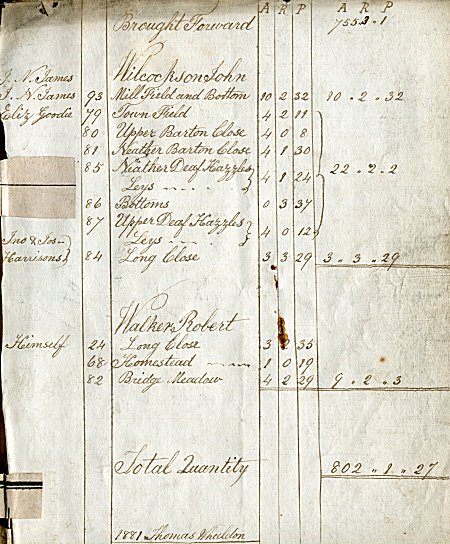 A R P A R P
Brought Forward 755.3.1
Wilcockson John
J. N. James
J. N. James 93 Mill Field and Bottom 10 2 32 10 .. 2 .. 32
Eliz Goodie 79 Town Field 4 2 11
80 Upper Barton Close 4 0 8
81 Neather Barton Close 4 1 30
85 Neather Deaf Hazzles
Leys 4 1 24 22 .. 2 .. 2
86 Bottoms 0 3 37
87 Upper Deaf Hazzles
Leys 4 0 12
Jno & Jos
Harrisons 84 Long Close 3 3 29 3 .. 3 .. 29
Walker Robert
Himself 24 Long Close 3 2 35
68 Homestead 1 0 19
82 Bridge Meadow 4 2 29 9 .. 2 .. 3
Total Quantity 802 .. 1 .. 27
1881 Thomas Wheildon